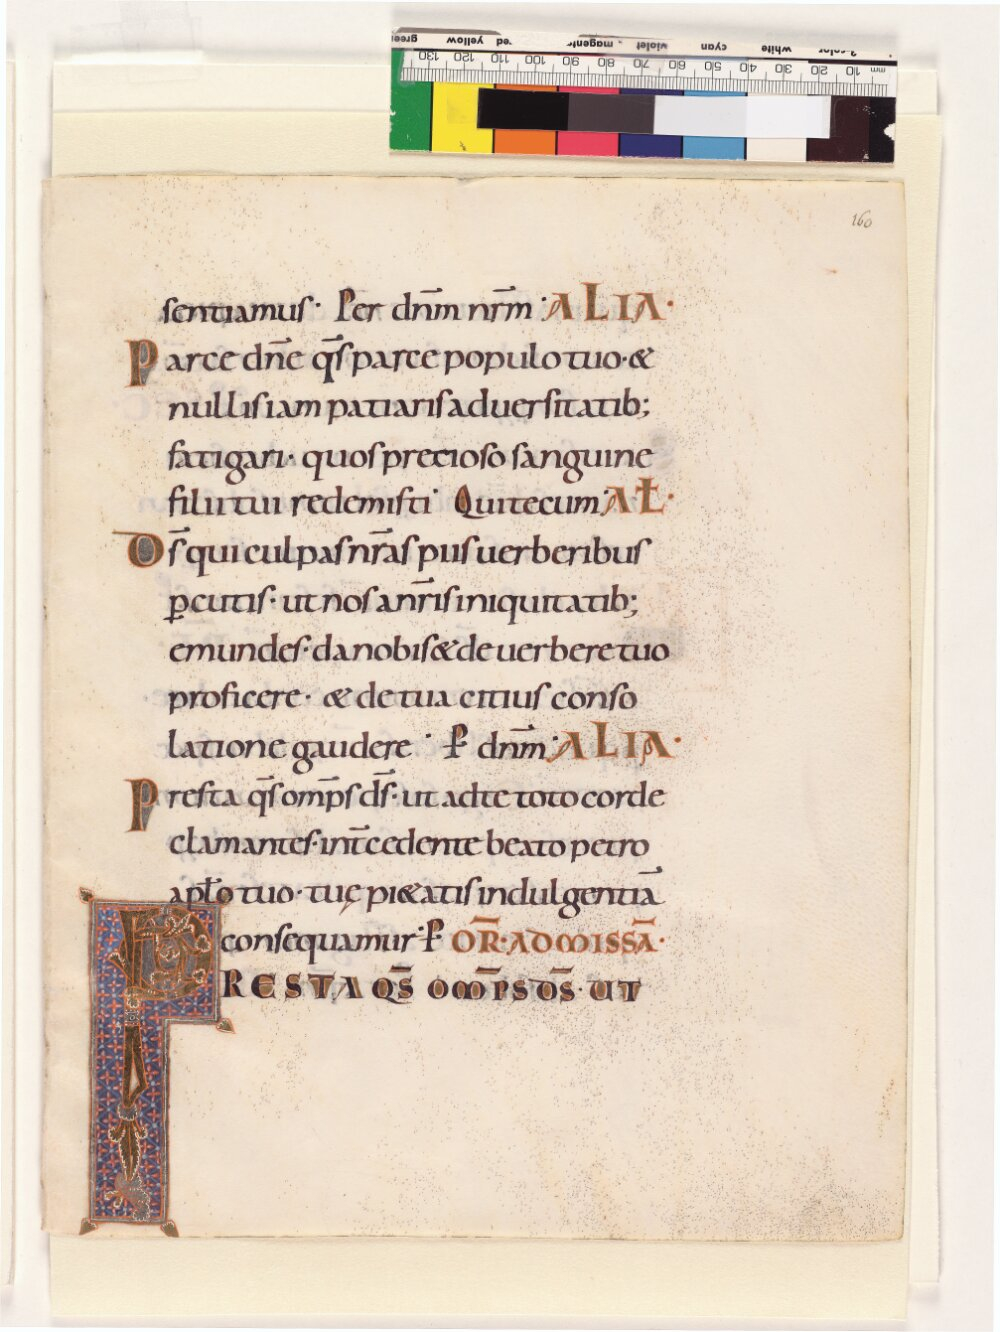 green yellow red magenta violet cyan white 3-color
130 120 110 100 90 80 70 60 50 40 30 20 10 mm
160
sentiamus· Per dn̄m nr̄m· ALIA·
Parce dn̄e q̄s parce populo tuo· &
nullis iam patiaris aduersitatib;
fatigari· quos precioso sanguine
filii tui redemisti· Qui tecum· AŁ·
Ds̄ qui culpas nr̄as piis uerberibus
ꝑcutis· ut nos a nr̄is iniquitatib;
emundes· da nobis & de uerbere tuo
proficere· & de tua citius conso
latione gaudere· P̵ dn̄m· ALIA·
Presta q̄s omp̄s ds̄· ut ad te toto corde
clamantes· int̄cedente beato petro
apło tuo· tuę pi&atis indulgentiā
consequamur· P̵ OR̄· AD MISSĀ·
PRESTA QS̄ OM̄PS DS̄· UT